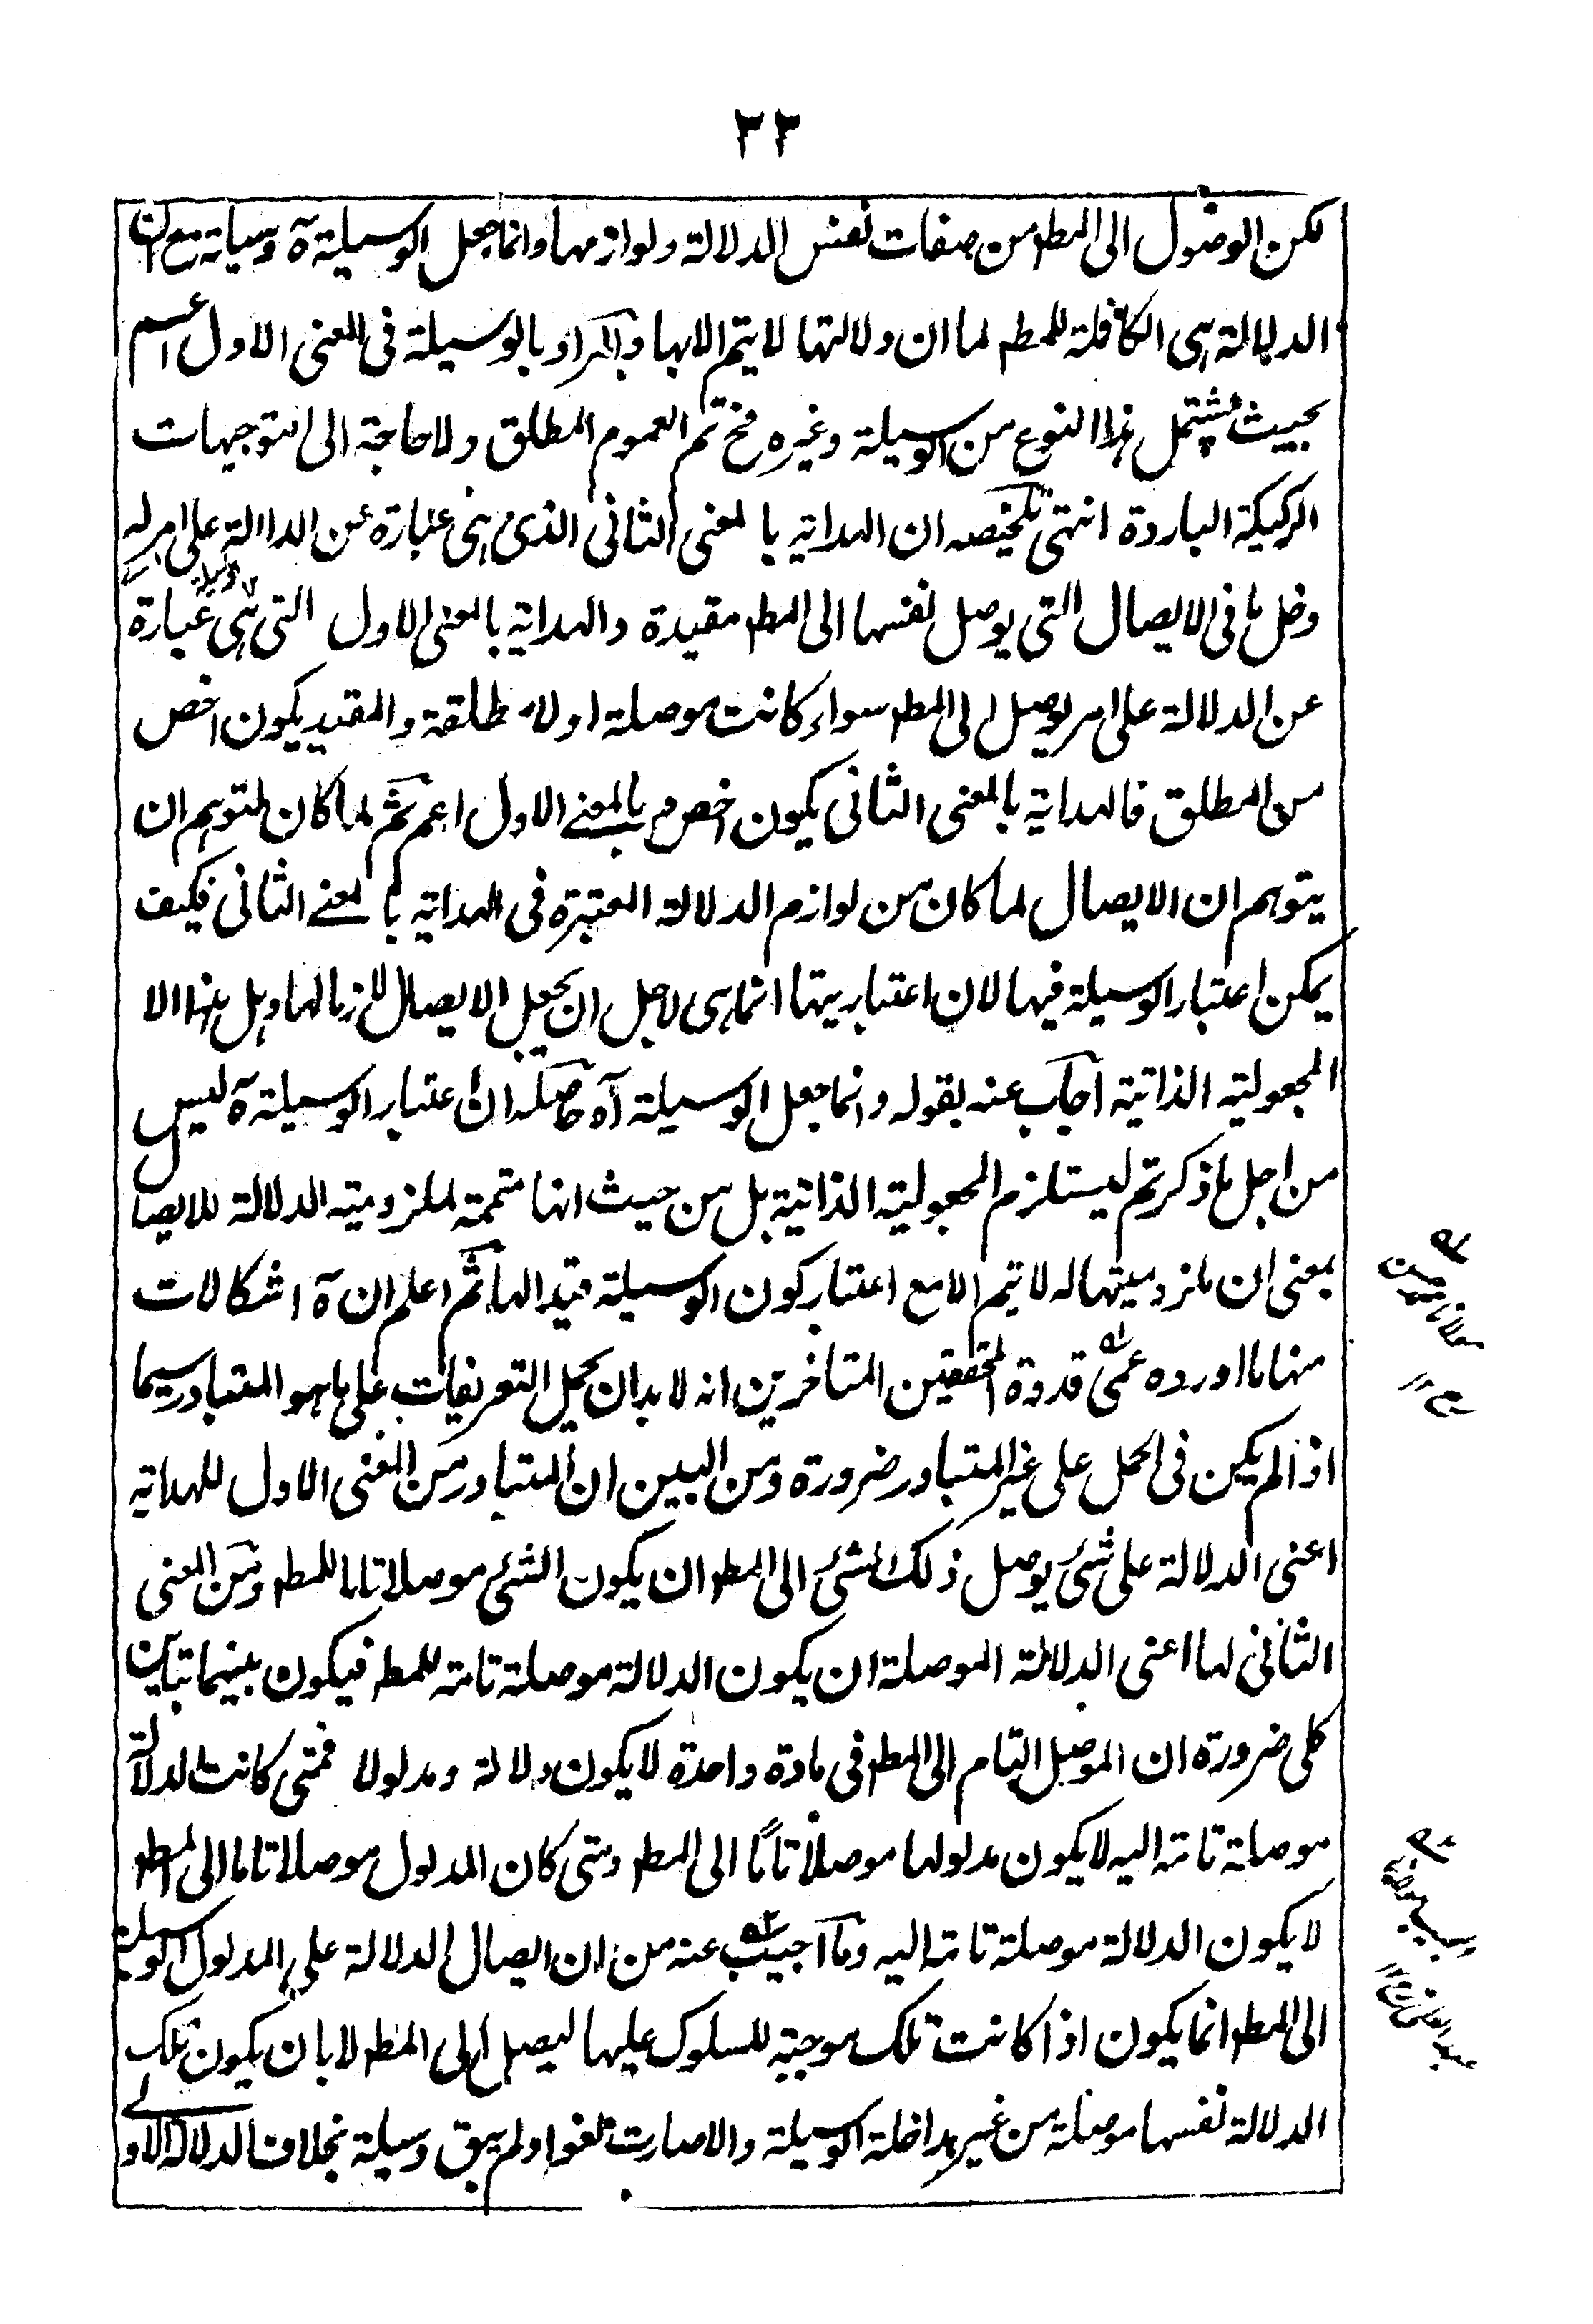 ٣٣
لكن الوصول الى المطـ من صفات نفس الدلالة ولوازمها وانما جعل الوسيلة آه وسيلة مع ان
الدلالة هى الكافلة للمطـ لما ان دلالتها لا يتم الا بها والمراد بالوسيلة فى المعنى الاول اعم
بحيث يشتمل هذا النوع من الوسيلة وغيره فح تم العموم المطلق ولا حاجة الى التوجيهات
الركيكة الباردة انتهى تلخيصه ان الهداية بالمعنى الثانى الذى هى عبارة عن الدالة على امر له
دخل ما فى الايصال التى يوصل نفسها الى المطـ مقيدة والهداية بالمعنى الاول التى هى عبارة
عن الدلالة على امر يوصل الى المطـ سواء كانت موصلة اولا مطلقة والمقيد يكون اخص
من المطلق فالهداية بالمعنى الثانى يكون اخص وبالمعنى الاول اعم ثم لما كان لمتوهم ان
يتوهم ان الايصال لما كان من لوازم الدلالة المعتبرة فى الهداية بالمعنے الثانى فكيف
يمكن اعتبار الوسيلة فيها لان اعتباريتها انما هى لاجل ان يجعل الايصال لازما لها وهل هذا الا
المجعولية الذاتية اجاب عنه بقوله وانما جعل الوسيلة آه حاصله ان اعتبار الوسيلة آه ليس
من اجل ما ذكرتم ليستلزم المجعولية الذاتية بل من حيث انها متممة لملزومية الدلالة للايصال
بمعنى ان ملزوميتها له لا يتم الا مع اعتبار كون الوسيلة قيدا لها ثم اعلم ان آه اشكالات
منها ما اورده عمى قدوة المحققين المتاخرين انه لا بد ان يحمل التعريفات على ما هو المتبادر سيما
اذا لم يكن فى الحمل على غير المتبادر ضرورة ومن البين ان المتبادر من المعنى الاول للهداية
اعنى الدلالة على شئ يوصل ذلك الشئ الى المطـ ان يكون الشئ موصلا تاما للمطـ ومن المعنى
الثانى لها اعنى الدلالة الموصلة ان يكون الدلالة موصلة تامة للمطـ فيكون بينهما تباين
كلى ضرورة ان الموصل التام الى المطـ فى مادة واحدة لا يكون دلالة ومدلولا فمتى كانت الدلالة
موصلة تامة اليه لا يكون مدلولها موصلاً تامًا الى المطـ ومتى كان المدلول موصلا تاما الى المطـ
لا يكون الدلالة موصلة تامة اليه وما اجيب عنه من ان ايصال الدلالة على المدلول الوسيلة
الى المطـ انما يكون اذا كانت تلك موجبة للسلوك عليها ليصل الى المطـ لا بان يكون تلك
الدلالة نفسها موصلة من غير مداخلة الوسيلة والا صارت لغوا ولم يبق وسيلة بخلاف الدلالة الاولى